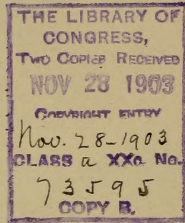 THE LIBRARY OF
CONGRESS,
TWO COPIES RECEIVED
NOV 28 1903
COPYRIGHT ENTRY
Nov. 28-1903
CLASS a XXc. No.
73595
COPY B.